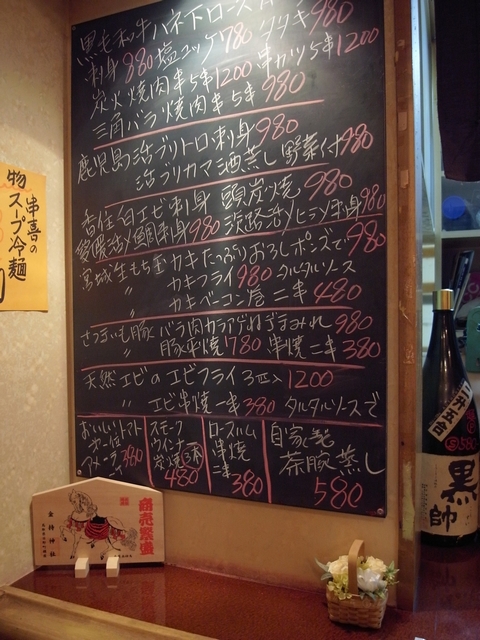 黒毛和牛ハネ下ロース
タタキ980
刺身880 塩ユッケ780 串カツ5本1200
炭火焼肉串5本1200
三角バラ焼肉串5本980
鹿児島活ブリトロ刺身980
活ブリカマ酒蒸し野菜付980
香住白エビ刺身 頭炭焼980
愛媛活〆鯛刺身980 淡路活〆ヒラメ刺身980
宮城生もち玉カキたっぷりおろしポンズで980
〃 カキフライ980 タルタルソース
〃 カキベーコン巻二本480
さつまいも豚バラ肉カラアゲねぎラーみれ980
〃 豚串焼780 串焼二本380
天然エビのエビフライ3匹入1200
〃 エビ串焼一本380 タルタルソースで
おいしいトマト
380
スモーク
ウインナー
炭焼(3本)
480
ロースハム
串焼
二本
380
自家製
茶豚蒸し
580
物
串喜の
スープ冷麺
商売繁盛
金持神社
一升五合
黒
帥